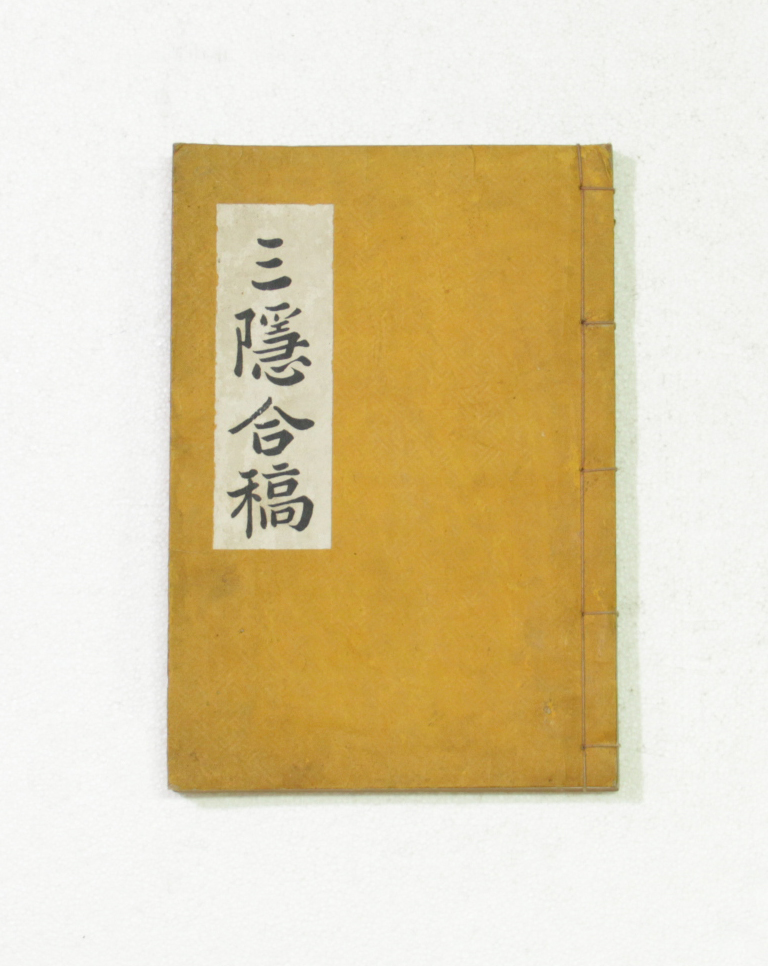 三隱合稿